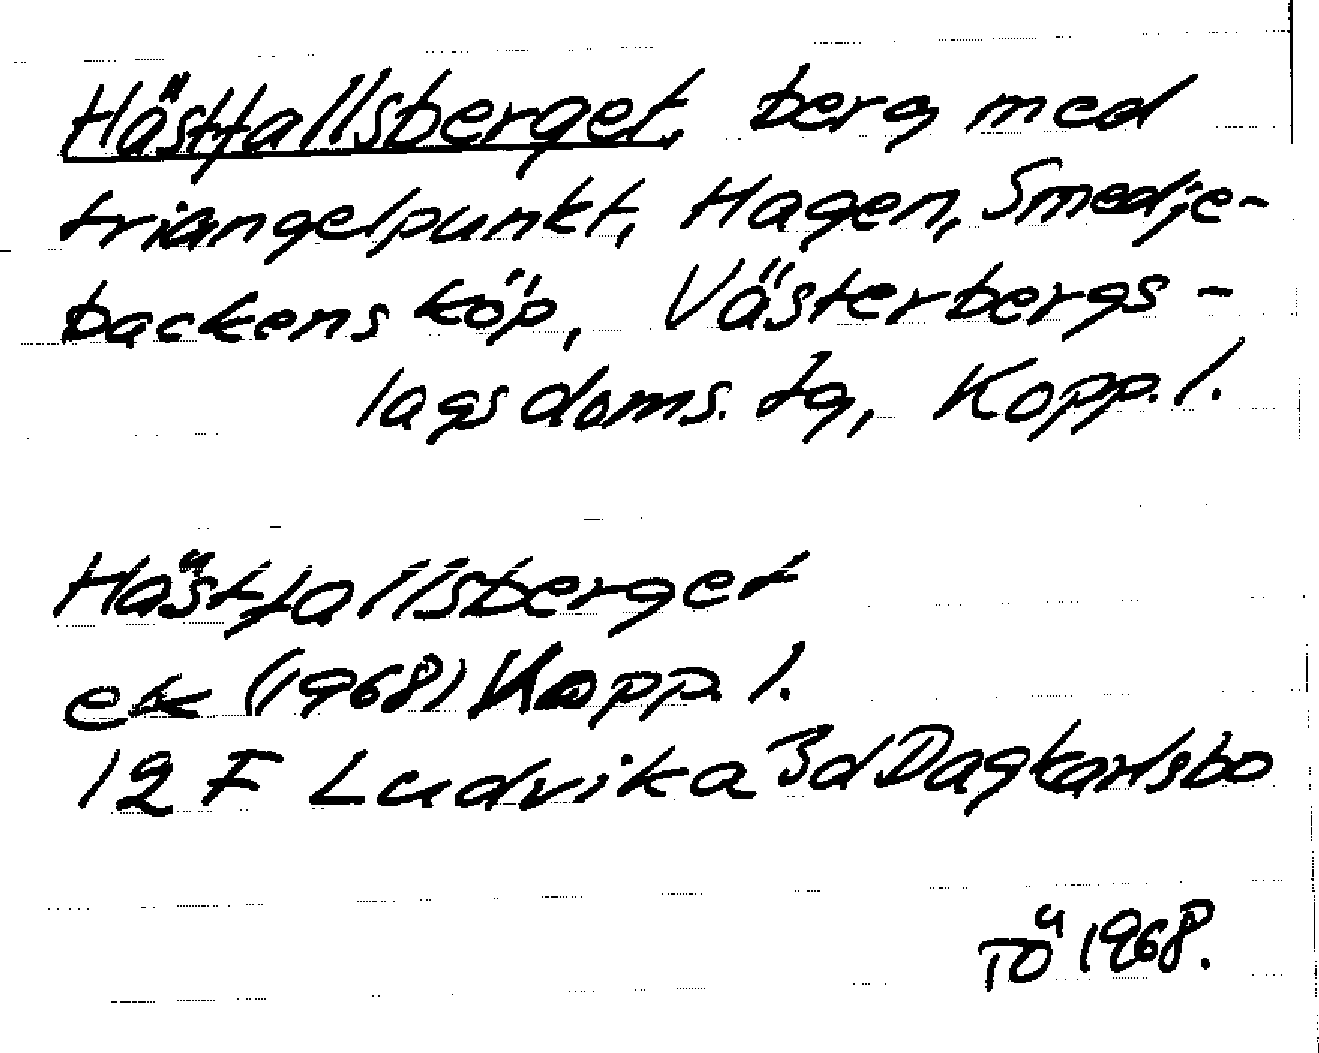 Hästfallsberget, berg med
triangelpunkt, Hagen, Smedje-
backens köp, Västerbergs-
lags doms. tg, Kopp. l.
Hästfallsberget
ek (1968) Kopp. l.
12 F Ludvika 3d Dagkarlsbo
TÖ 1968.